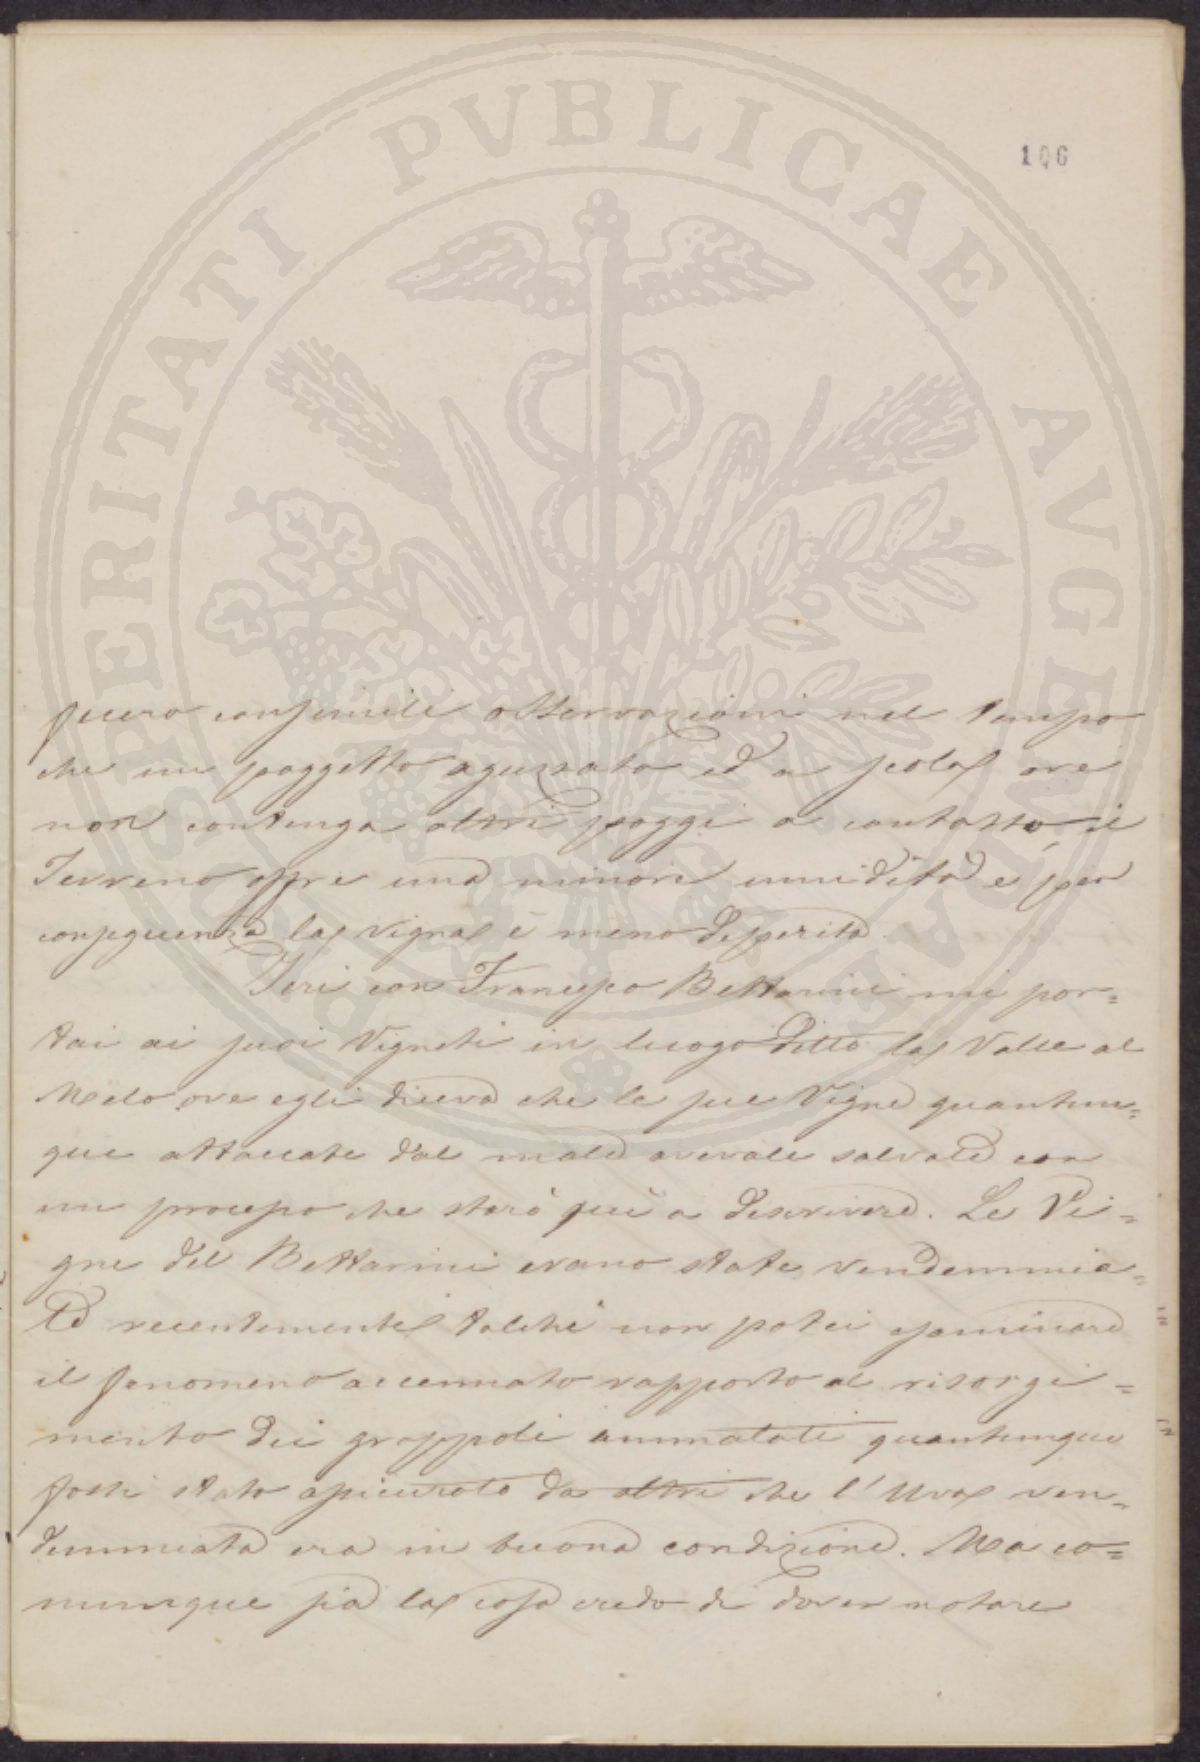 106
PROSPERITATI PUBLICAE AVGENDAE
fecero consimili osservazioni nel tempo
che un poggetto aguzzato ed a scola ove
non contenga altri poggi a contatto, il
Terreno offre una minore umidità e per
conseguenza la vigna è meno deperita.
Ieri con Francesco Bettarini mi por=
tai ai suoi Vigneti in luogo ditto la Valle al
Melo ove egli diceva che le sue Vigne quantun=
que attaccate dal male avevale salvate con
un processo che starò quì a descrivere. Le Vi=
gne del Bettarini erano state vendemmia=
te recentemente talchè non potei esaminare
il fenomeno accennato rapporto al risorgi=
mento dei grappoli ammalati quantunque
fossi stato assicurato da altri che l'Uva ven=
demmiata era in buona condizione. Ma co=
munque sia la cosa credo di dover notare